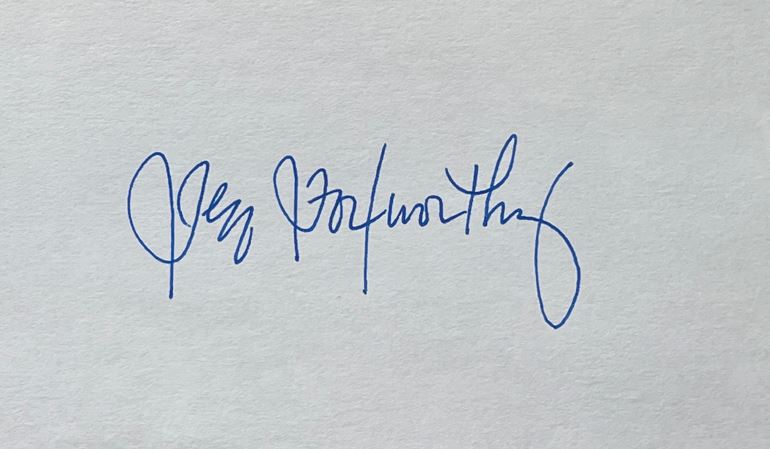 Jeff Foxworthy